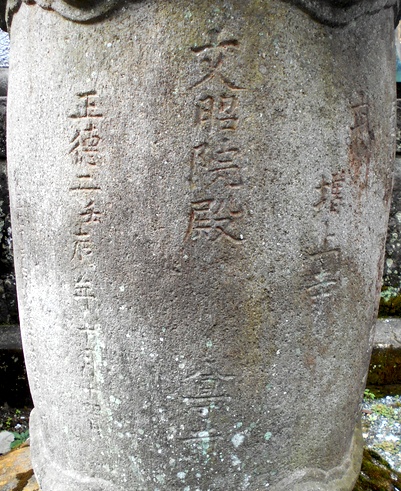 武州
増上寺
文昭院殿
尊前
正徳二壬辰年十月十四日